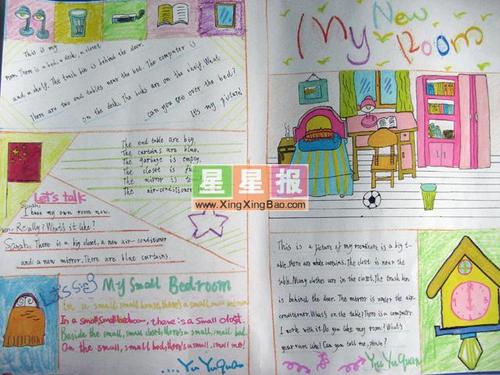 This is my
room. There is a bed, a desk, a closet
and a shelf. The trash bin is behind the door. The computer is
There are two end tables near the bed.
on the desk. The books are on the shelf. What
can you see over the bed?
It's my picture!
The end table are big.
The curtains are blue.
The garbage is empty.
The closet is
The mirror is
The air-conditioner
Let's talk
Sarah:
I have my own room now.
Really? What's it like?
Sarah: There is a big closet, a new air-conditioner
and a new mirror. There are blue curtains.
My Small Bedroom
In a small, small house, there's a small, small
In a small, small bedroom, there is a small closet.
Beside the small, small closet, there's a small, small bed.
On the small, small bed, there's a small, small me!
.... Yu YuQuan
My New Room
星星报
www.XingXingBao.com
This is a picture of my room. There is a big
table, there are white curtains. The closet is near the
table. Many clothes are in the closet. The trash bin
is behind the door. The mirror is under the air-
conditioner. What's on the table? There is a computer.
I work with it. Do you like my room? What's
your room like? Can you tell me, ?
Yu YuQuan